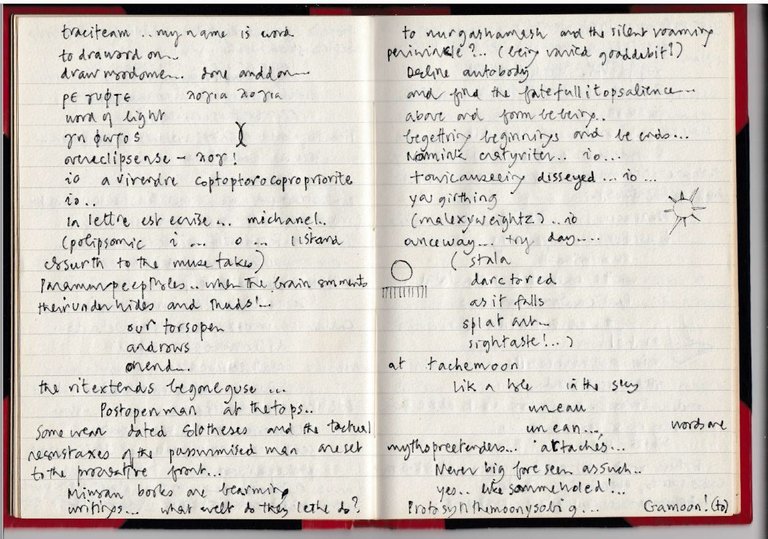 traciteam .. my name is word
to draword on...
drawmoodomen... done anddon...
ρε γυφτε λογια λογια
word of light
γη φωτος
overeclipsense - λογ!
io a virerdre coptoptorocopropriorite
io..
la lettre est ecrise... michanel..
(polipsomic i ... o ... listand
essurth to the muse takes)
Panamumpeepholes.. when the brain omments
their underhides and thuds!..
our torsopen
androws
onend...
the ritextends begoneguse ...
Postopenman at thetops..
Some wear dated Elotheses and the tactual
of the passurmised man are set
to the provative front...
Minran books are bearming
writings... what welt do they lethe do?
to nurgashamash and the silent roaming
periwinkle?.. (being varied goaddebit?)
Decline autobody
and find the fatefullitopsalience...
above and form bebeing..
begetting beginnings and be ends...
io...
disseyed... io...
yougirthing
(malexyweightz).. io
onceway... try day....
(stala
darctored
as it falls
splat art...
sightaste!..)
at tachemoon
Lik a hole in the sky
uneau
un ean..., words are
mythopreetenders... attaches,
Never big fore seen as such..
yes.. like sommeholed!...
Protosynthemoonysobig... Gamoon! (to)